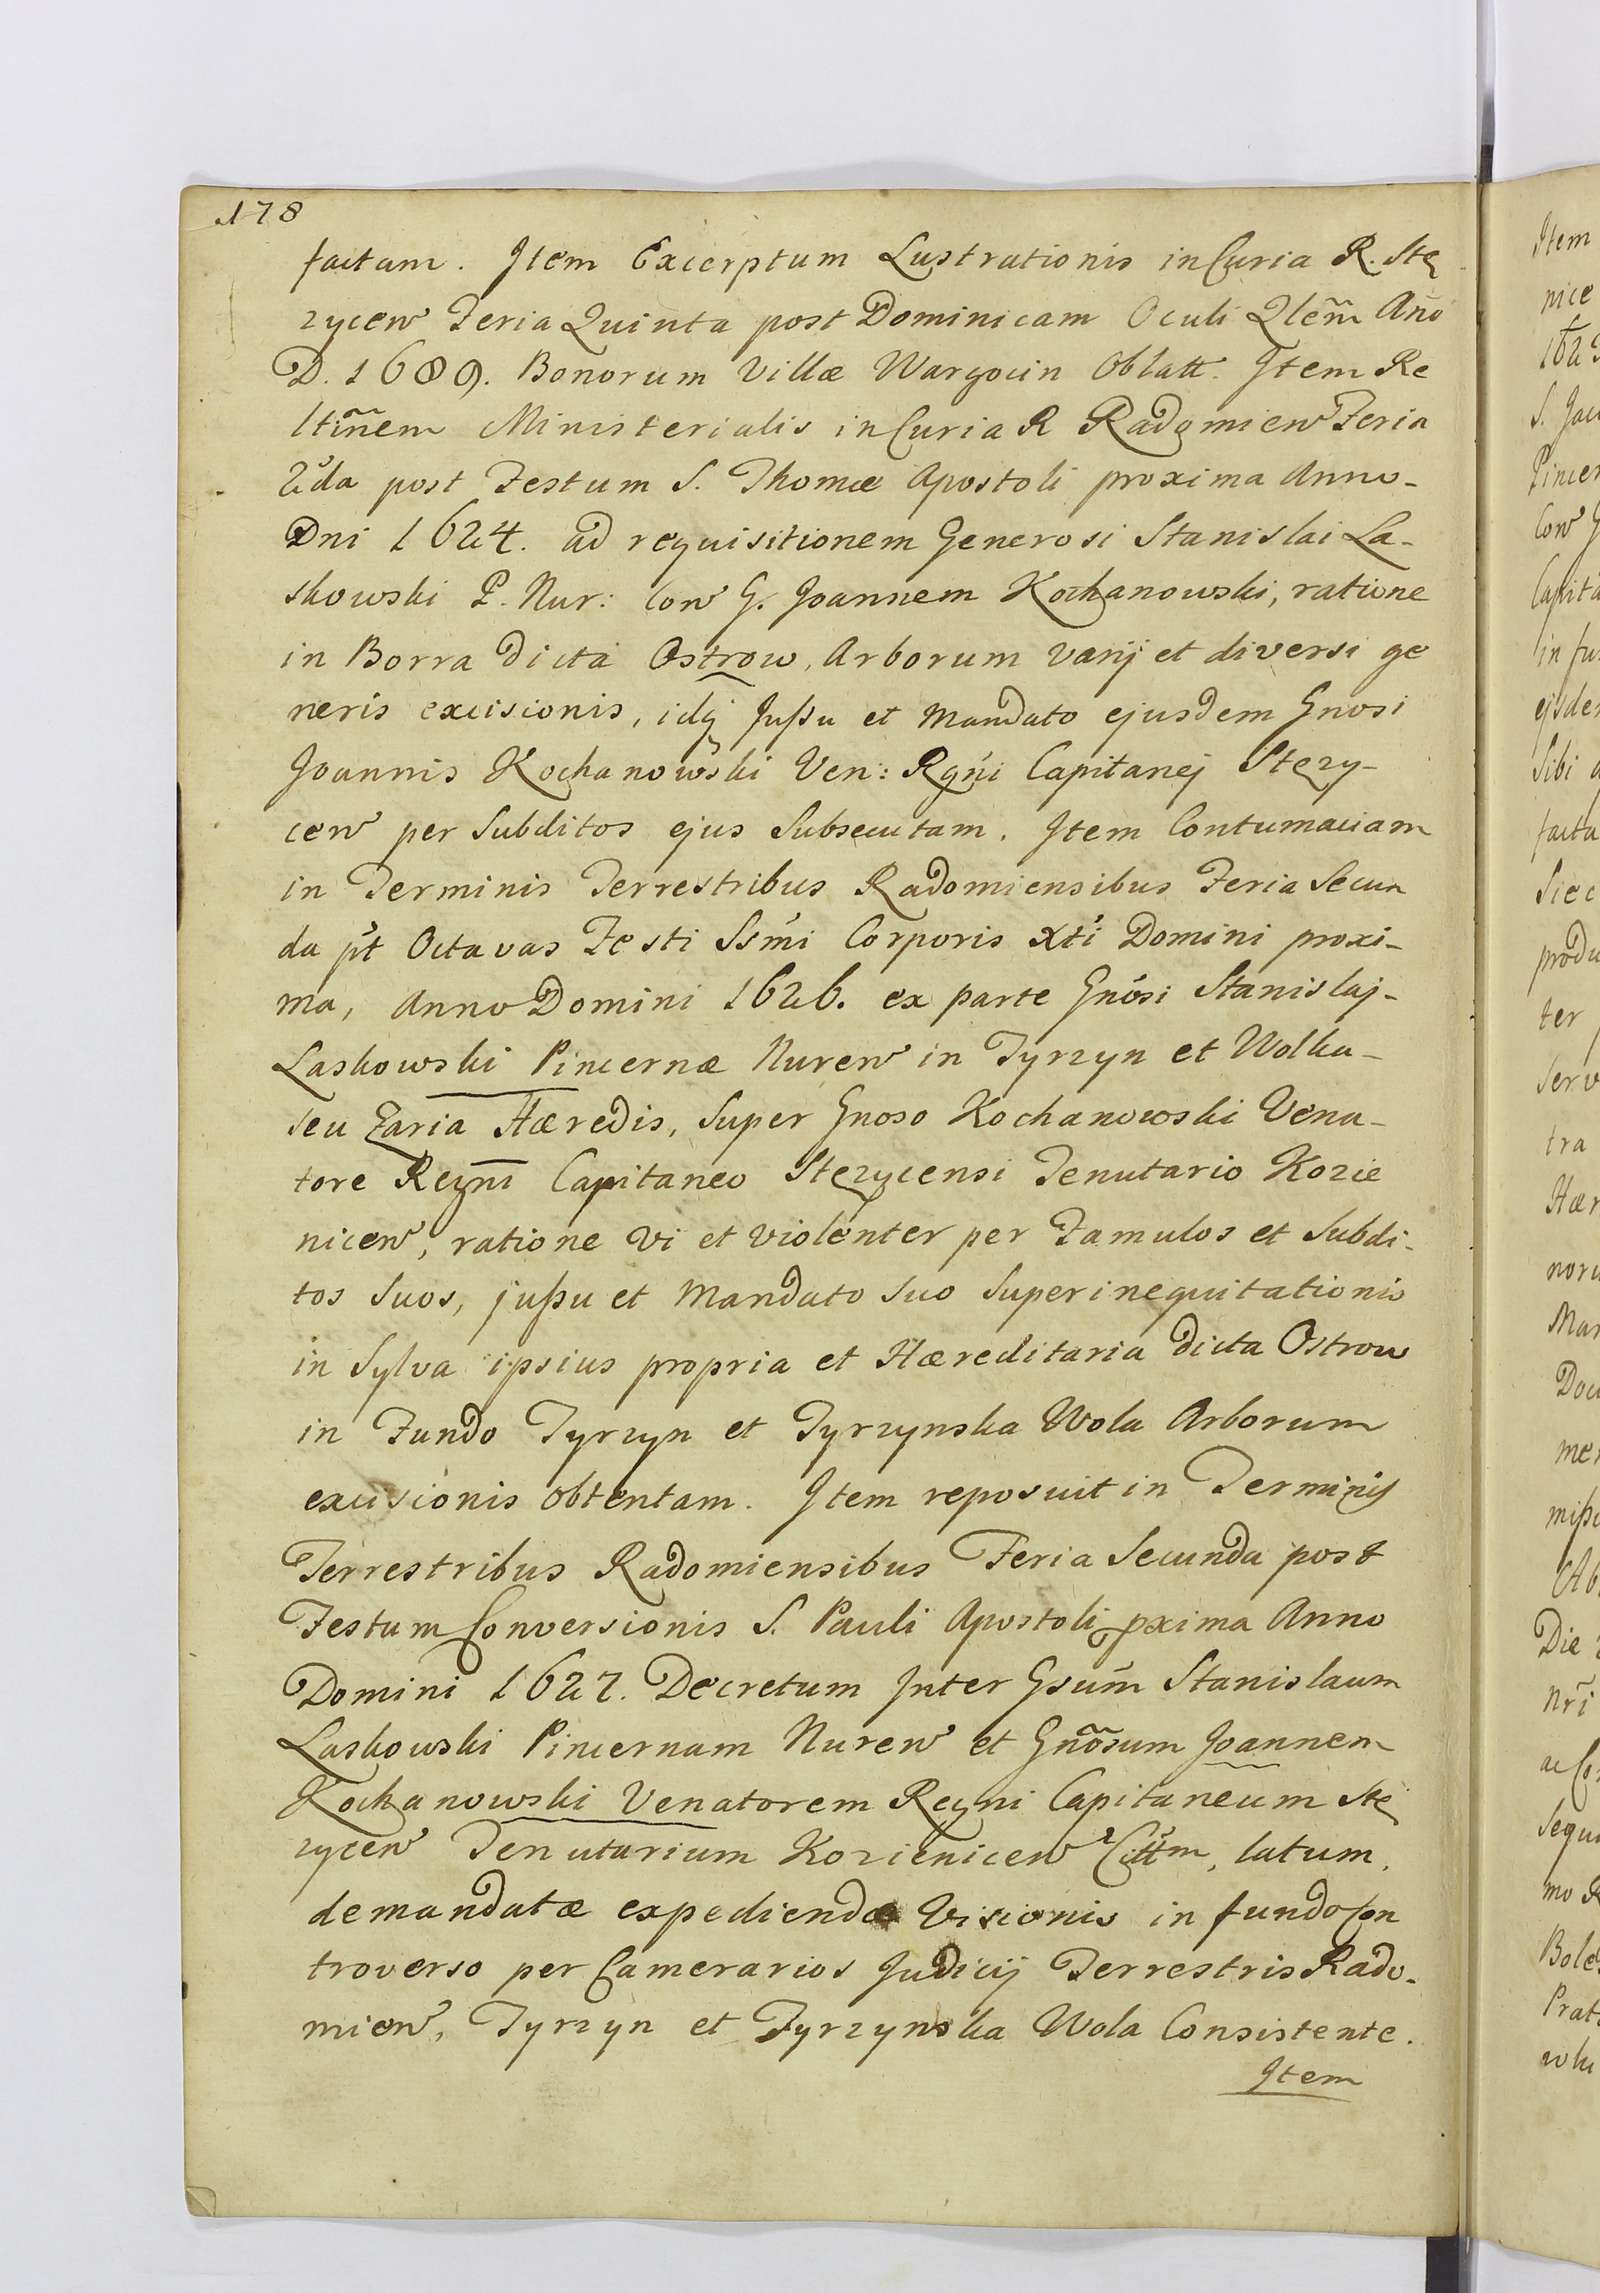 178
factam. Item Excerptum Lustrationis in Curia R. Stę
zycen Feria Quinta post Dominicam Oculi Qlem̃ Año
D. 1689. Bonorum Villæ Wargocin Oblatt. Item Re
ltiñem Ministerialis in Curia R Radomien Feria
2da post Festum S. Thomæ Apostoli proxima Anno-
Dni 1624. ad requisitionem Generosi Stanislai La-
skowski P. Nur: Con G. Joannem Kochanowski, ratione
in Borra dicta Ostrow, Arborum varij et diversi ge
neris excisionis, idq Jussu et Mandato ejusdem Gnosi
Joannis Kochanowski Ven: Rgni Capitanej Stęzy-
cen per Subditos ejus Subsecutam. Item Contumaciam
in Terminis Terrestribus Radomiensibus Feria Secun
da pt Octavas Festi Ssmi Corporis Xti Domini proxi-
ma, Anno Domini 1626. ex parte Gnosi Stanislaj-
Laskowski Pincernæ Nuren in Tyrzyn et Wolka-
seu Zaria Hæredis, Super Gnoso Kochanowski Vena-
tore Regni Capitaneo Stęzycensi Tenutario Kozie
nicen, ratione Vi et violenter per Famulos et Subdi-
tos Suos, jussu et Mandato Suo Superinequitationis
in Sylva ipsius propria et Hæreditaria dicta Ostrow
in Fundo Tyrzyn et Tyrzynska Wola Arborum
excisionis obtentam. Item reposuit in Terminis
Terrestribus Radomiensibus Feria Secunda post
Festum Conversionis S. Pauli Apostoli pxima Anno
Domini 1627. Decretum Inter Gsum̃ Stanislaum
Laskowski Pincernam Nuren et Gnõsum Joannem
Kochanowski Venatorem Regni Capitaneum Stę
zycen Tenutarium Kozienicen Cittm, latum,
demandatæ expediendæ Visionis in fundo Con
troverso per Camerarios Judicij Terrestris Rado-
mien, Tyrzyn et Tyrzynska Wola Consistente.
Item